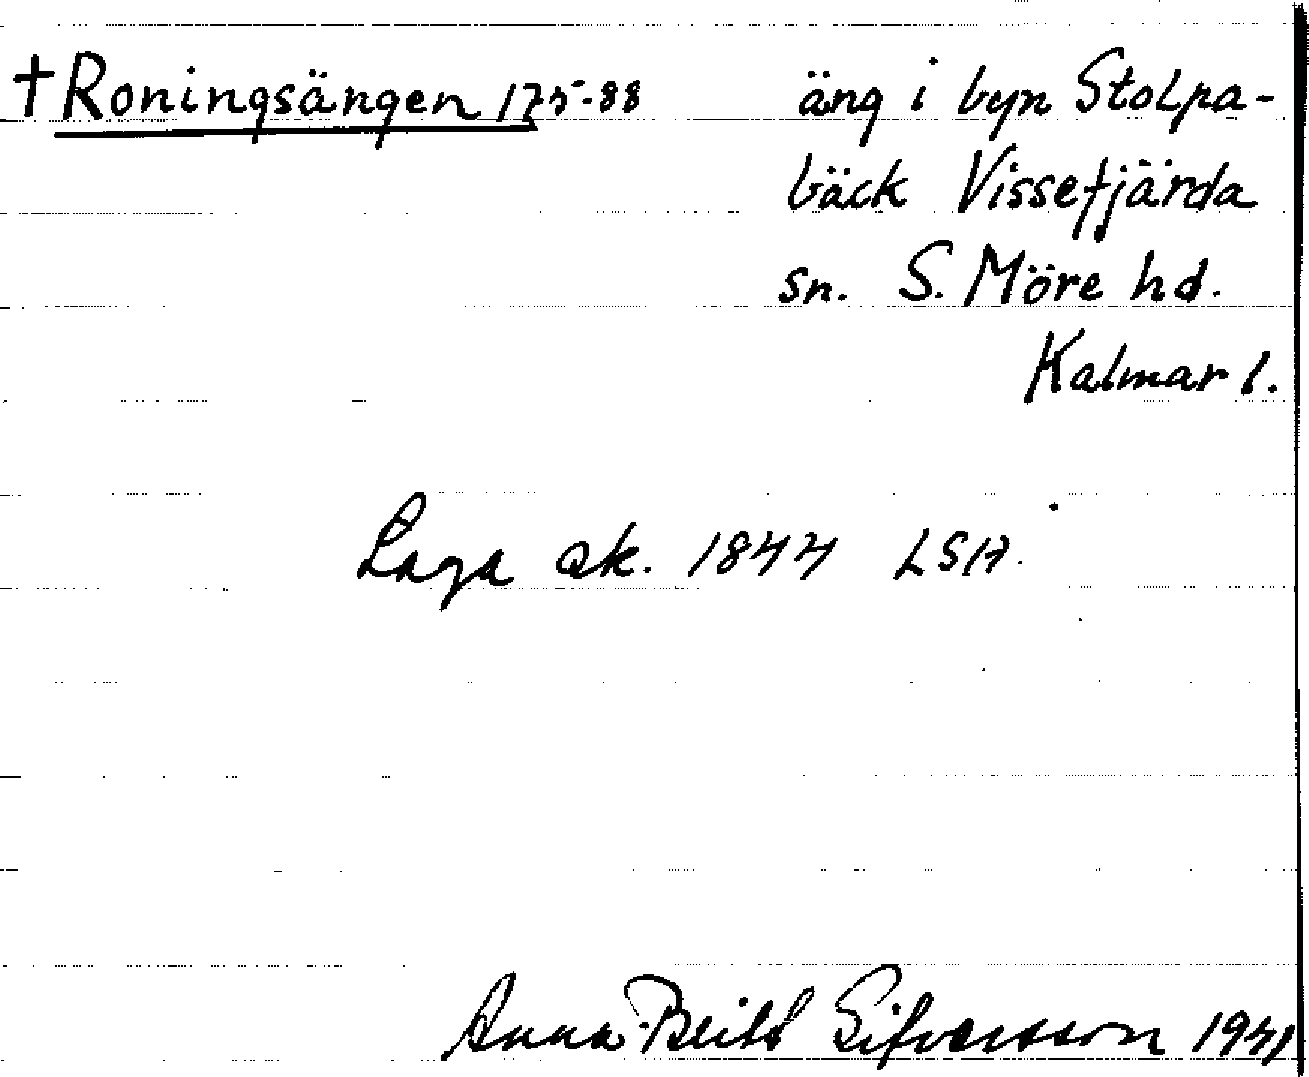 † Roningsängen 175-88 äng i byn Stolpa-
bäck Vissefjärda
sn. S. Möre hd.
Kalmar l.
Laga sk. 1844 LSA.
Anna-Britt Sifversson 1941